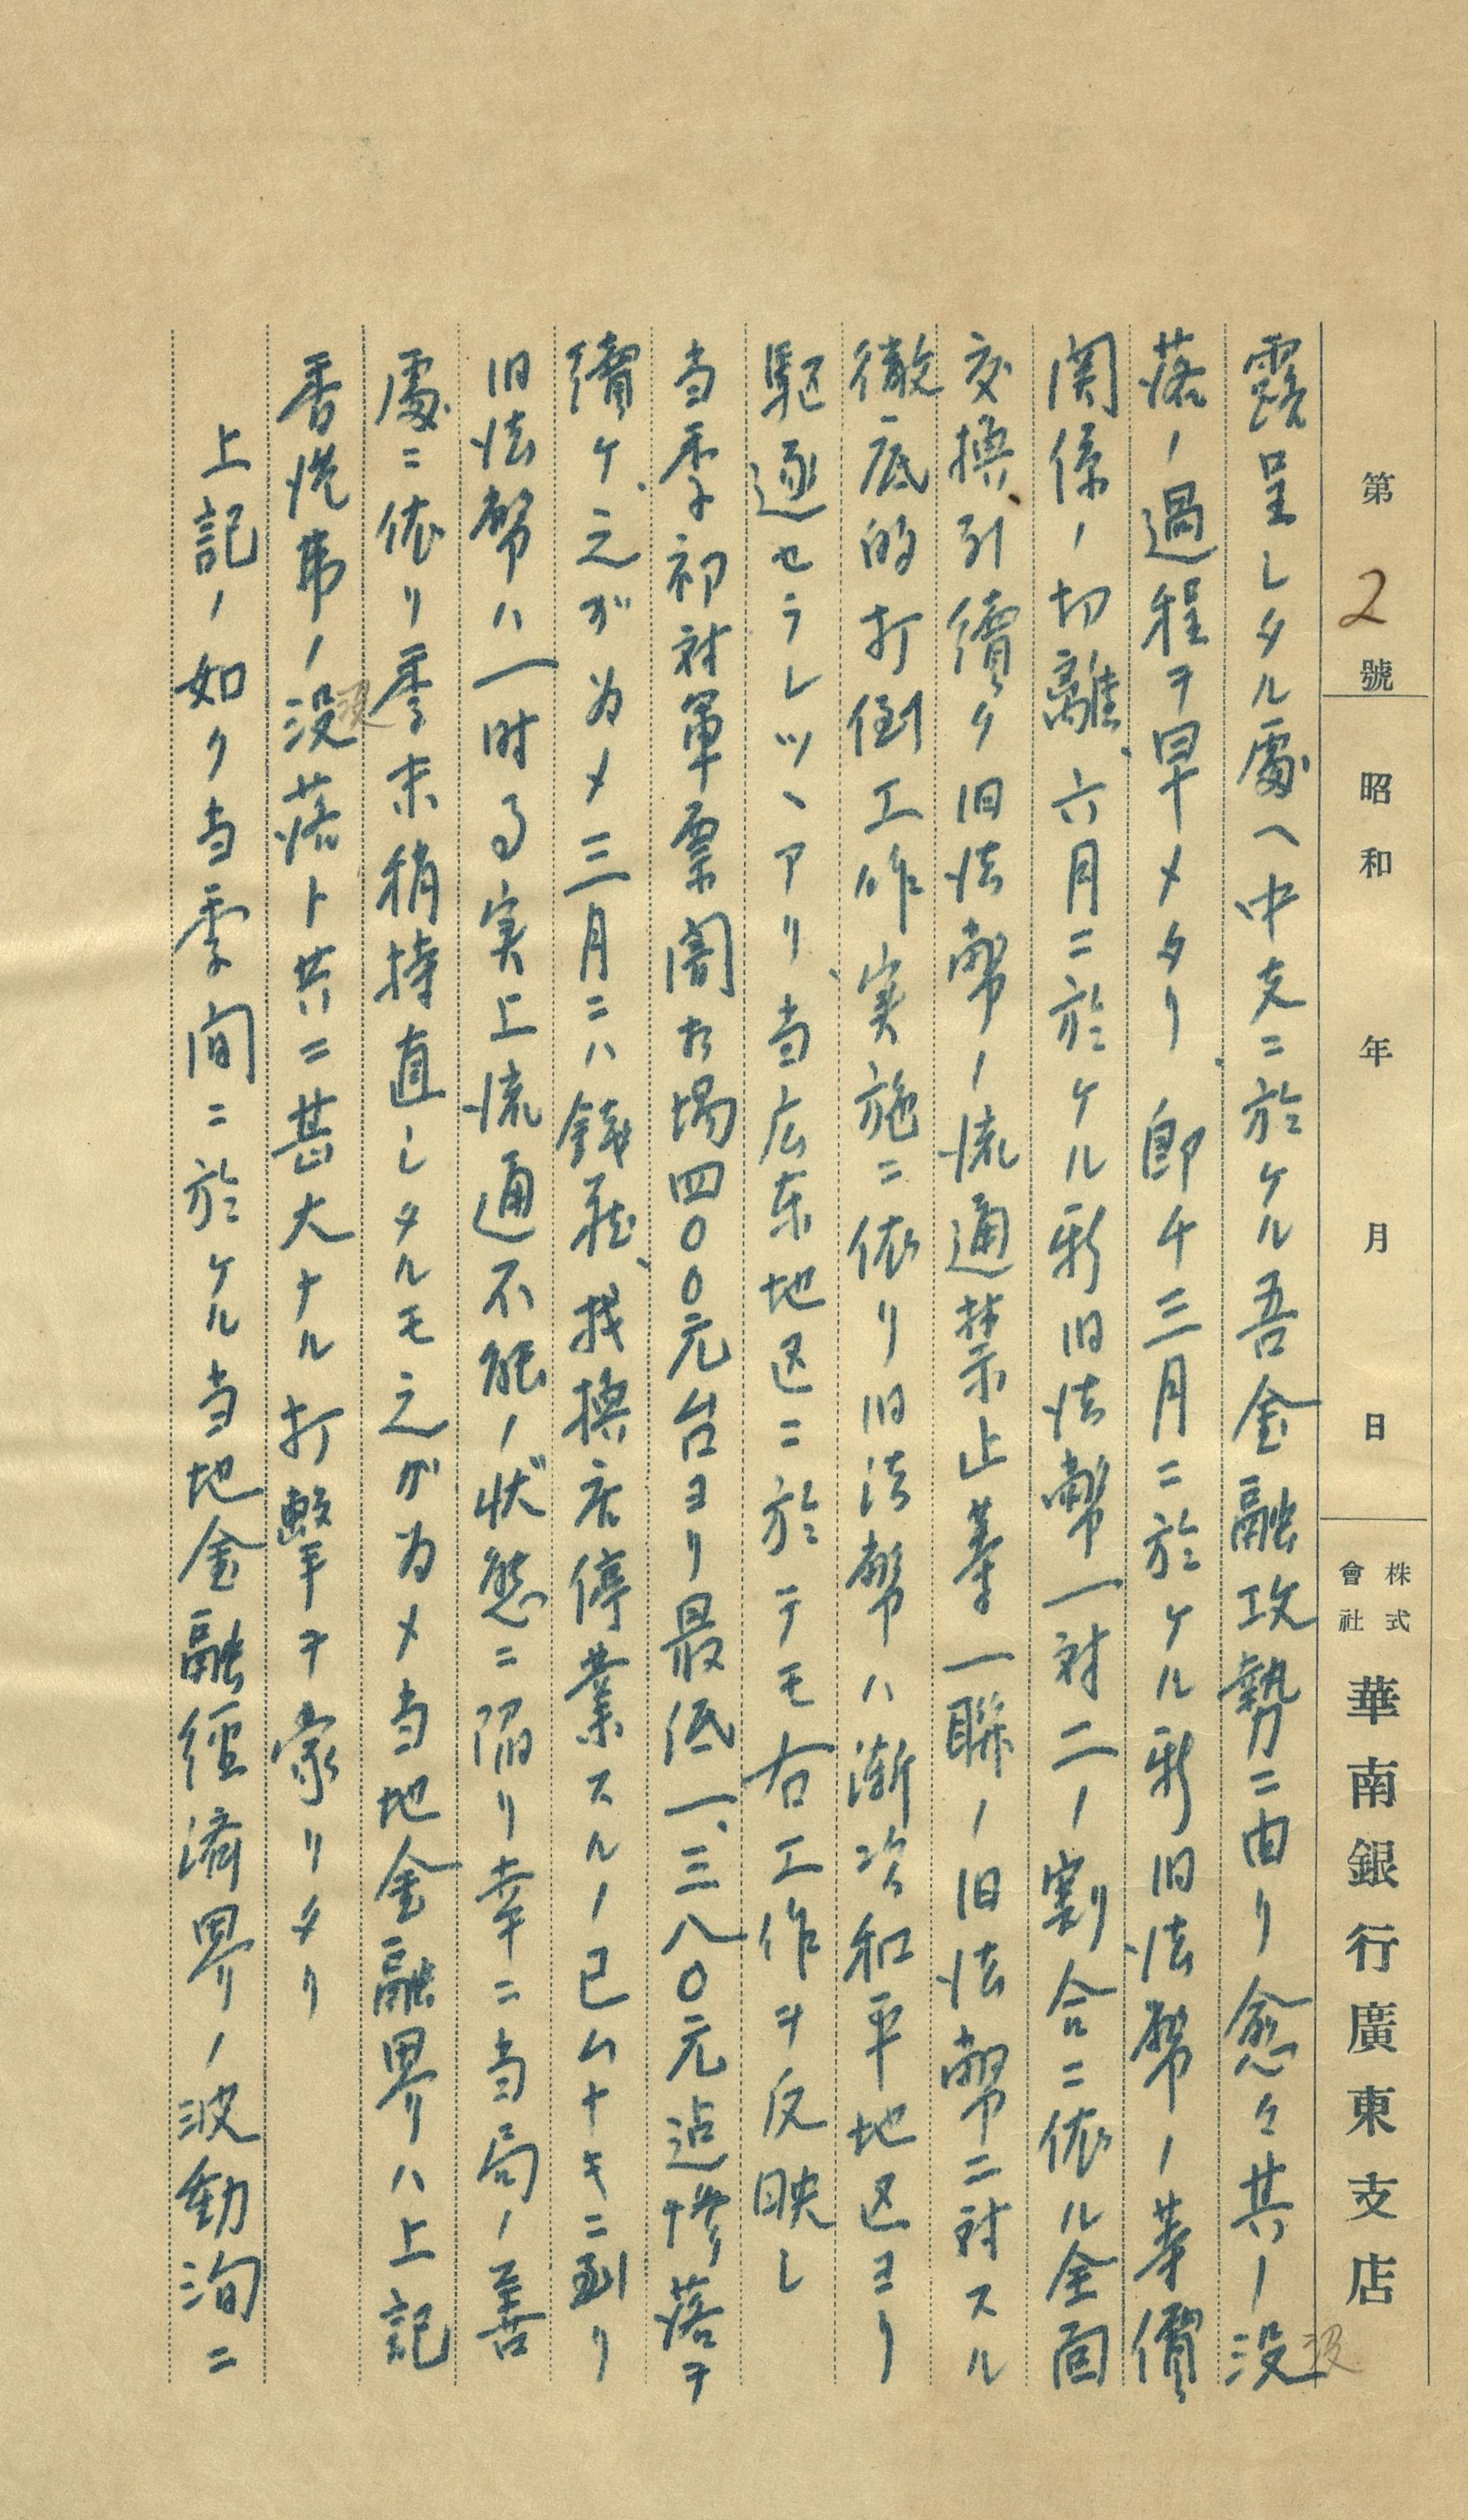 第2號 昭和 年 月 日 株式會社 華南銀行廣東支店
露呈シタル處ヘ中支ニ於ケル吾金融攻勢ニ由リ愈々其ノ没
没
落ノ過程ヲ早メタリ、即チ三月ニ於ケル新旧法幣ノ等價
関係ノ切離、六月ニ於ケル新旧法幣一対二ノ割合ニ依ル全面
交換、引續ク旧法幣ノ流通禁止等一聯ノ旧法幣ニ対スル
徹底的打倒工作実施ニ依リ旧法幣ハ漸次和平地区ヨリ
駆逐セラレツヽアリ、当広东地区ニ於テモ右工作ヲ反映シ
当季初対軍票闇相場四〇〇元台ヨリ最低一、三八〇元迠惨落ヲ
續ケ、之ガ為メ三月ニハ錢莊、找換店停業スルノ已ムナキニ到リ
旧法幣ハ一时事実上流通不能ノ状態ニ陥リ幸ニ当局ノ善
處ニ依リ季末稍持直シタルモ之ガ為メ当地金融界ハ上記
香港弗ノ没落ト共ニ甚大ナル打撃ヲ蒙リタリ
没
上記ノ如ク当季间ニ於ケル当地金融経済界ノ波動洵ニ